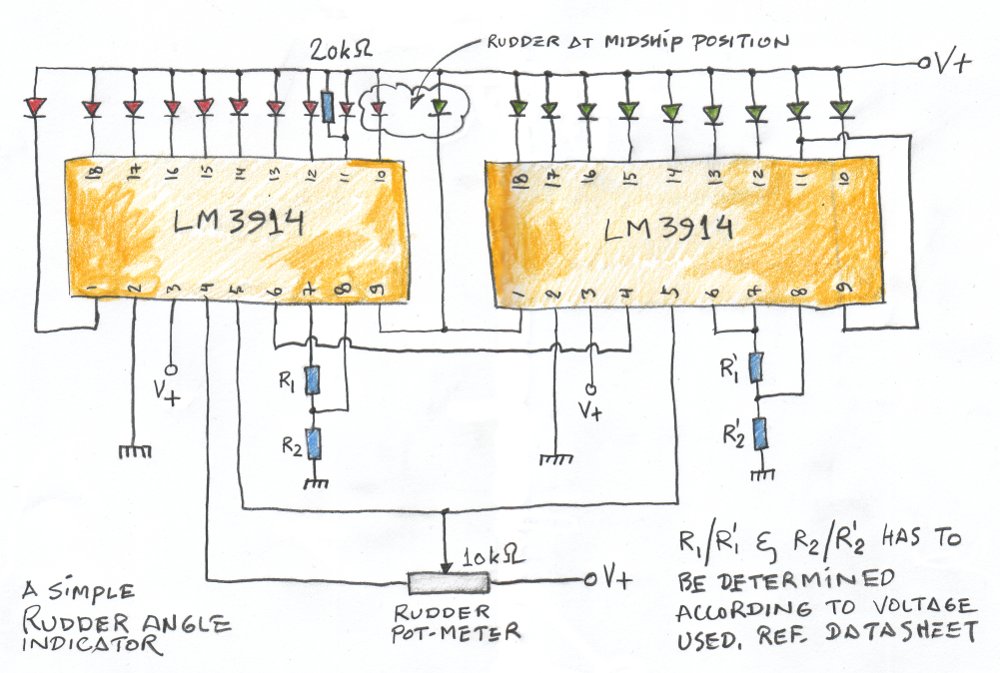 20kΩ
RUDDER AT MIDSHIP POSITION
V+
18 17 16 15 14 13 12 11 10
LM3914
1 2 3 4 5 6 7 8 9
18 17 16 15 14 13 12 11 10
LM3914
1 2 3 4 5 6 7 8 9
V+
R1
R2
V+
R'1
R'2
10kΩ
V+
RUDDER
POT-METER
A SIMPLE
RUDDER ANGLE
INDICATOR
R1/R'1 & R2/R'2 HAS TO
BE DETERMINED
ACCORDING TO VOLTAGE
USED. REF. DATASHEET